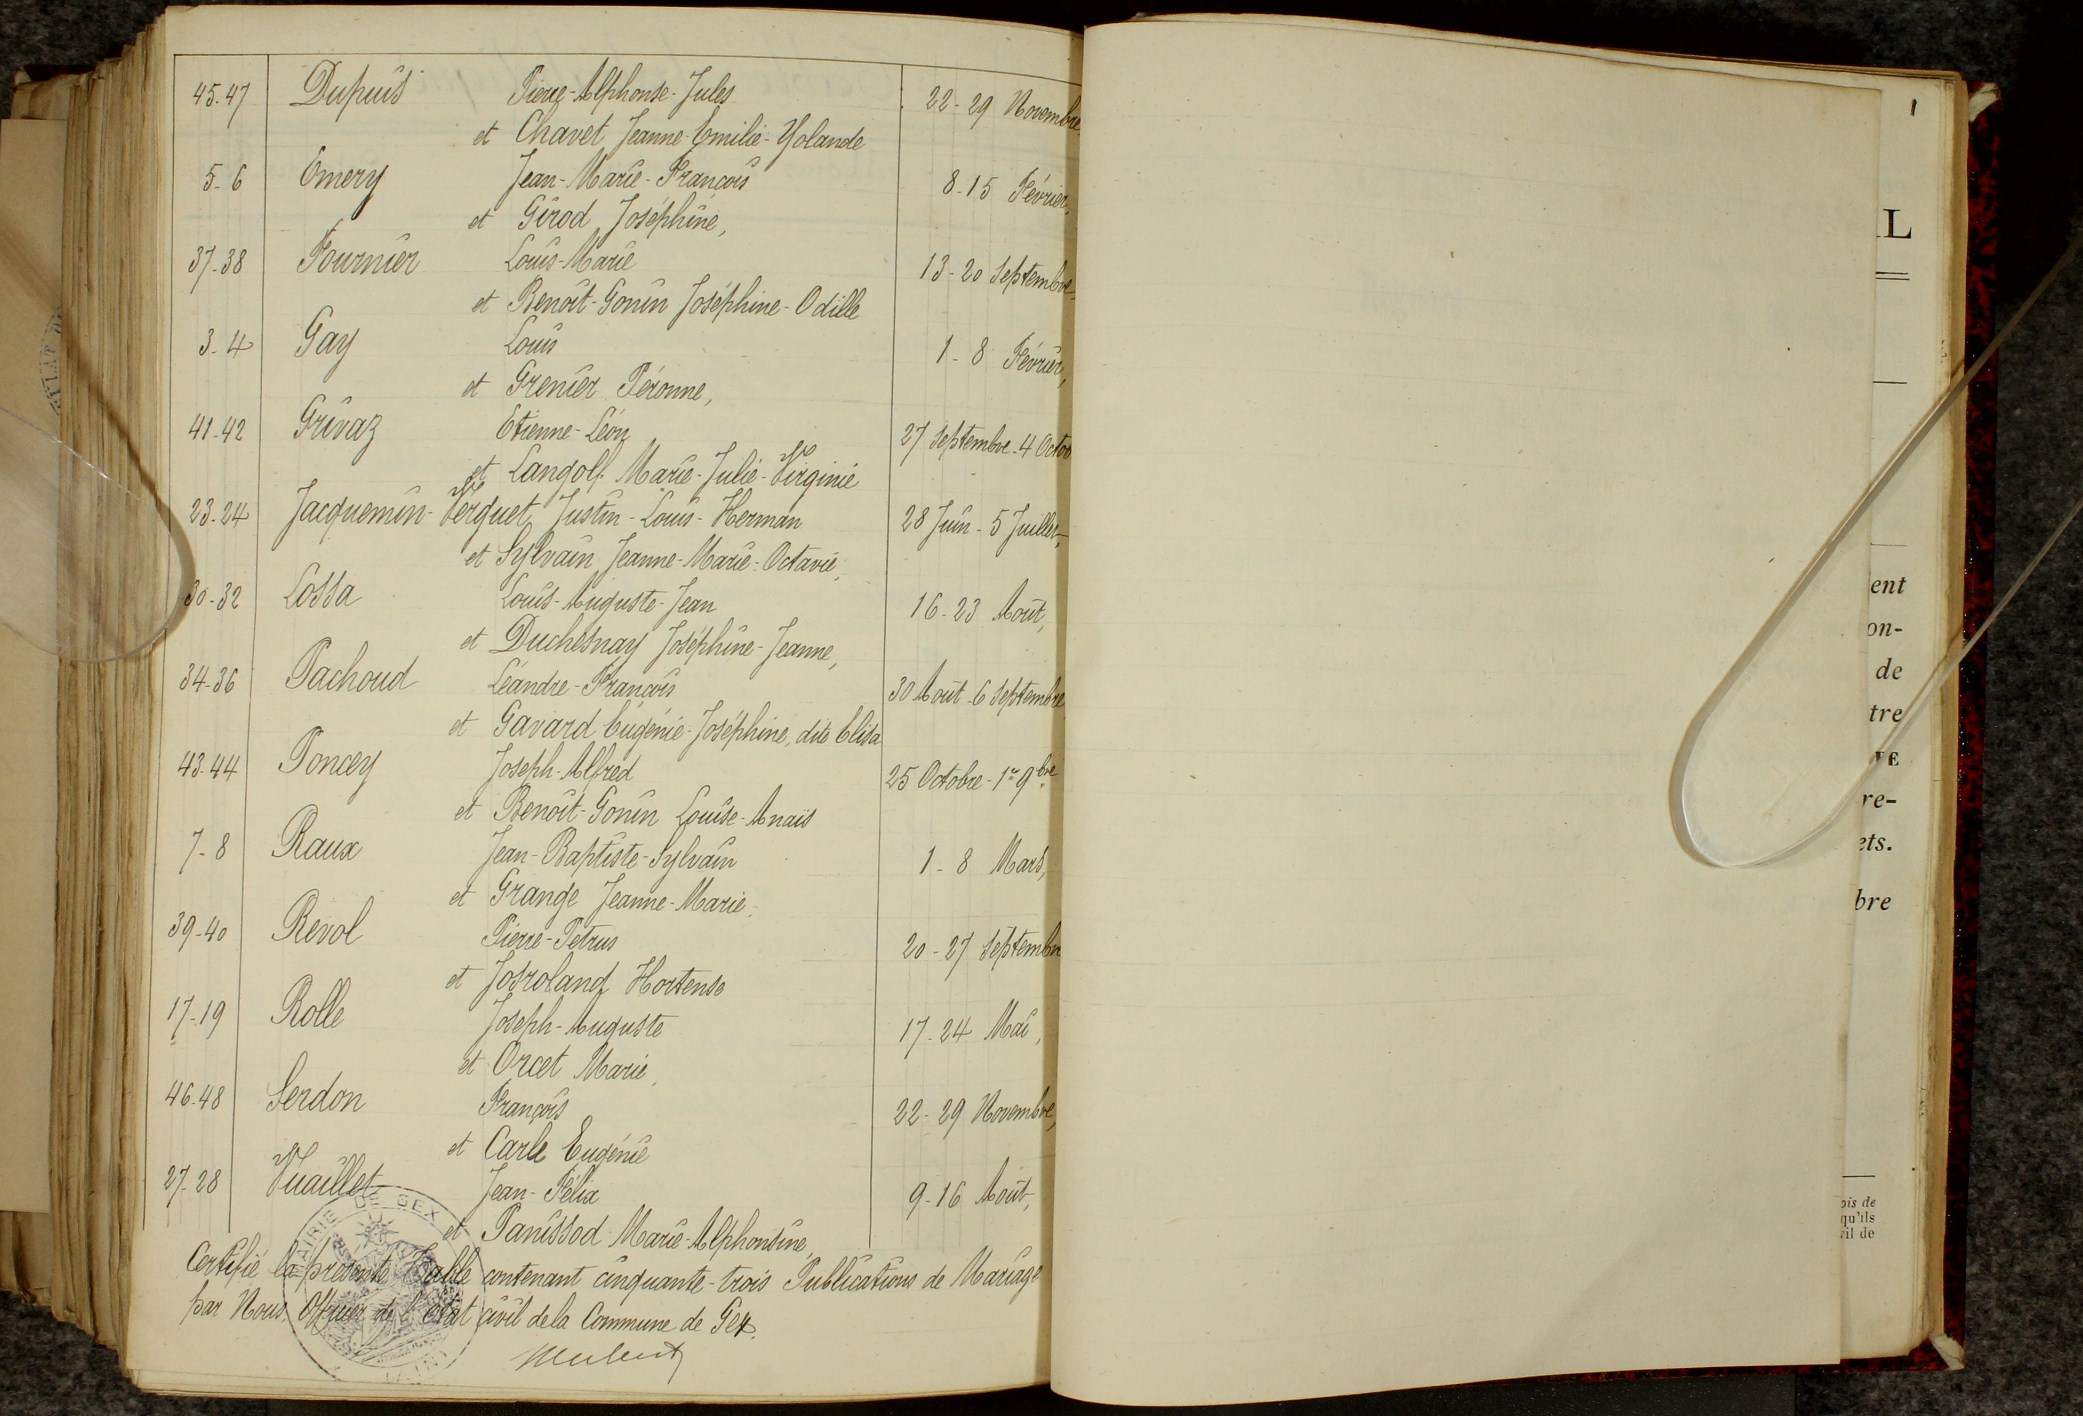 45-47 Dupuis Pierre-Alphonse-Jules 22-29 Novembre
et Chavet Jeanne-Emilie-Yolande
5-6 Emery Jean-Marie-François 8-15 Février,
et Girod Joséphine,
37-38 Fournier Louis-Marie 13-20 Septembre
et Benoit-Gonin Joséphine-Odille
3-4 Gay Louis 1-8 Février,
et Grenier Péronne,
41-42 Grivaz Etienne-Léon 27 Septembre-4 Octob
et Langolf Marie-Julie-Virginie
23-24 Jacquemin-Verguet, Justin-Louis-Herman 28 Juin-5 Juillet,
et Sylvain Jeanne-Marie-Octavie,
30-32 Lossa Louis-Auguste-Jean 16-23 Août,
et Duchesnay Joséphine-Jeanne,
34-36 Pachoud Léandre-François 30 Août-6 Septembre
et Gavard Eugénie-Joséphine, dite Elisa
43-44 Poncey Joseph-Alfred 25 Octobre-1er 9bre
et Benoit-Gonin Louise-Anaïs
7-8 Raux Jean-Baptiste-Sylvain 1-8 Mars,
et Grange Jeanne-Marie,
39-40 Revol Pierre-Petrus 20-27 Septembre
et Josroland Hortense
17-19 Rolle Joseph-Auguste 17-24 Mai,
et Orcet Marie,
46-48 Serdon François 22-29 Novembre,
et Carle Eugénie
27-28 Vuaillet Jean-Félix 9-16 Août,
et Panissod Marie-Alphonsine,
Certifié la présente Table contenant cinquante-trois Publications de Mariage
par Nous, Officier de l'état civil de la Commune de Gex.
MAIRIE DE GEX
(AIN)
1
L
ent
on-
de
tre
re-
ets.
bre
ois de
qu'ils
vil de